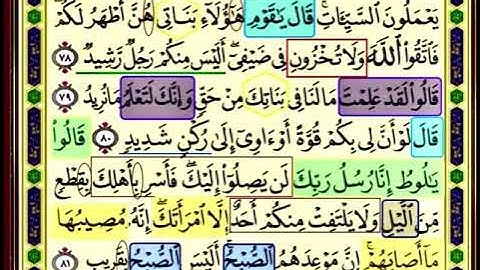 يَعْمَلُونَ ٱلسَّيِّـَٔاتِۚ قَالَ يَٰقَوْمِ هَٰٓؤُلَآءِ بَنَاتِى هُنَّ أَطْهَرُ لَكُمْۖ
فَٱتَّقُوا۟ ٱللَّهَ وَلَا تُخْزُونِ فِى ضَيْفِىٓۖ أَلَيْسَ مِنكُمْ رَجُلٌ رَّشِيدٌ ٧٨
قَالُوا۟ لَقَدْ عَلِمْتَ مَا لَنَا فِى بَنَاتِكَ مِنْ حَقٍّ وَإِنَّكَ لَتَعْلَمُ مَا نُرِيدُ ٧٩
قَالَ لَوْ أَنَّ لِى بِكُمْ قُوَّةً أَوْ ءَاوِىٓ إِلَىٰ رُكْنٍ شَدِيدٍ ٨٠ قَالُوا۟
يَٰلُوطُ إِنَّا رُسُلُ رَبِّكَ لَن يَصِلُوٓا۟ إِلَيْكَۖ فَأَسْرِ بِأَهْلِكَ بِقِطْعٍ
مِّنَ ٱلَّيْلِ وَلَا يَلْتَفِتْ مِنكُمْ أَحَدٌ إِلَّا ٱمْرَأَتَكَۖ إِنَّهُۥ مُصِيبُهَا
مَآ أَصَابَهُمْۚ إِنَّ مَوْعِدَهُمُ ٱلصُّبْحُۚ أَلَيْسَ ٱلصُّبْحُ بِقَرِيبٍ ٨١